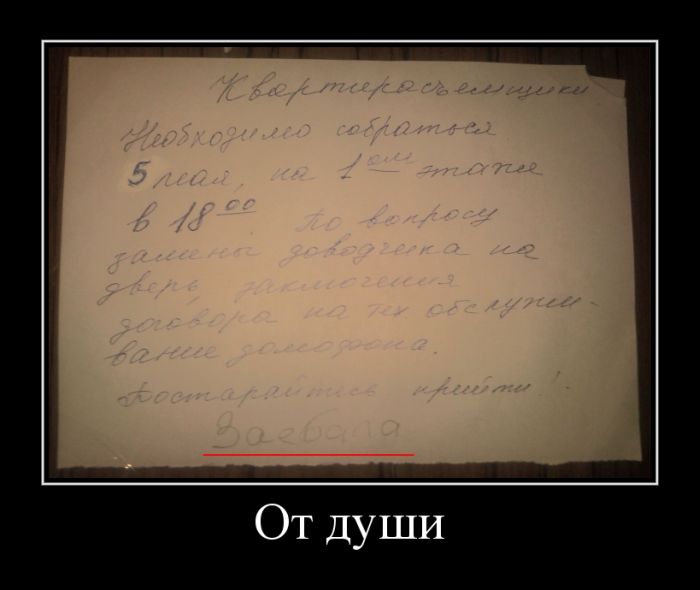 Квартиросъемщики
Необходимо собраться
5 мая, на 1ом этаже
в 18 00. По вопросу
замены доводчика на
дверь, заключения
договора на тех обслужи-
вание домофона.
Постарайтесь прийти!
Заебала
От души